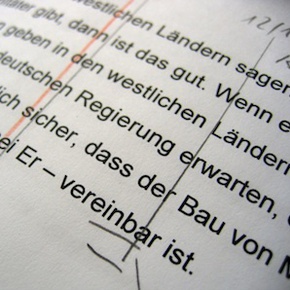 westlichen Ländern sagen
gibt, dann ist das gut. Wenn e
geben in den westlichen Ländern
deutschen Regierung erwarten,
lich sicher, dass der Bau von M
ei Er – vereinbar ist.
12/1